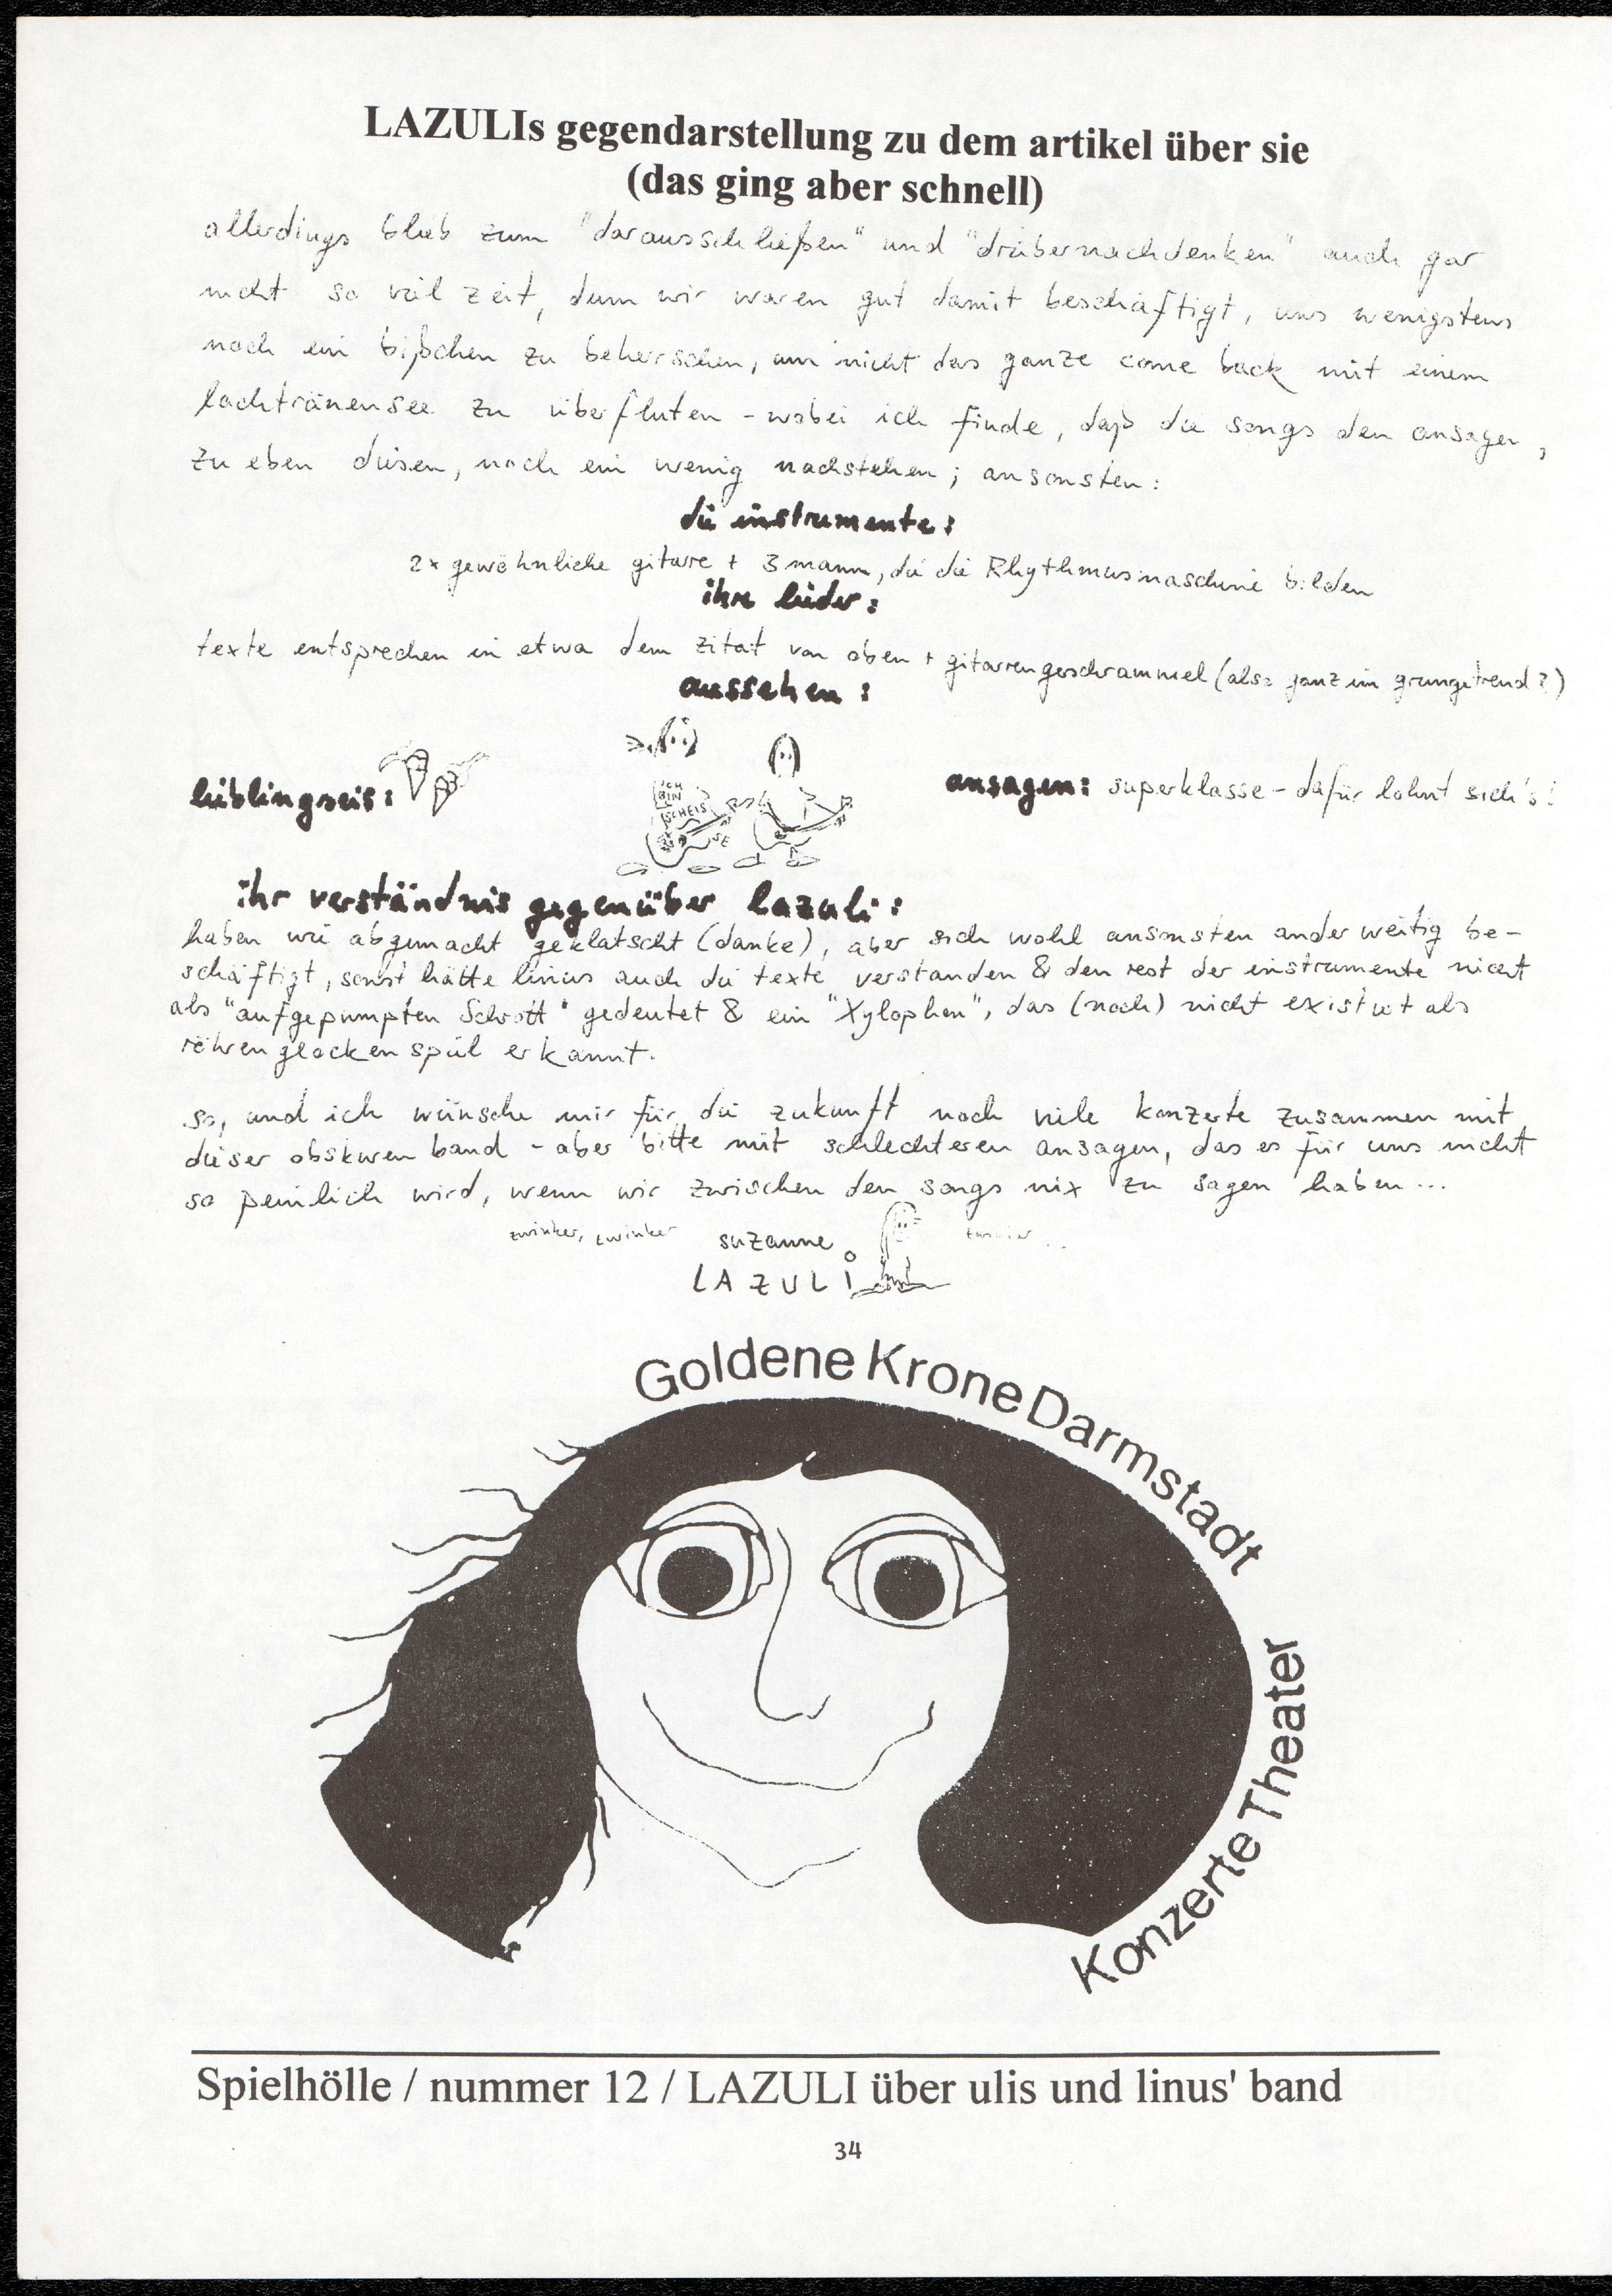 LAZULIs gegendarstellung zu dem artikel über sie
(das ging aber schnell)
allerdings blieb zum "darausschließen" und "drübernachdenken" auch gar
nicht so viel zeit, denn wir waren gut damit beschäftigt, uns wenigstens
noch ein bißchen zu beherrschen, um nicht das ganze come back mit einem
lachtränensee zu überfluten - wobei ich finde, daß die songs den ansagen,
zu eben diesen, noch ein wenig nachstehen; ansonsten:
die instrumente:
2x gewöhnliche gitarre + 3 mann, die die Rhythmusmaschine bilden
ihre lieder:
texte entsprechen in etwa dem zitat von oben + gitarrengeschrammel (also ganz im grungetrend?)
aussehen:
lieblingseis:
ICH
BIN
SCHEIS
SE
ansagen: superklasse - dafür lohnt sich's!
ihr verständnis gegenüber lazuli:
haben wie abgemacht geklatscht (danke), aber sich wohl ansonsten anderweitig be-
schäftigt, sonst hätte linus auch die texte verstanden & den rest der instrumente nicht
als "aufgepumpten Schrott" gedeutet & ein "Xylophon", das (noch) nicht existiert als
röhrenglockenspiel erkannt.
so, und ich wünsche mir für die zukunft noch viele konzerte zusammen mit
dieser obskuren band - aber bitte mit schlechteren ansagen, das es für uns nicht
so peinlich wird, wenn wir zwischen den songs nix zu sagen haben...
zwinker, zwinker suzanne zwinker...
LAZULI
Goldene Krone Darmstadt
Konzerte Theater
Spielhölle / nummer 12 / LAZULI über ulis und linus' band
34